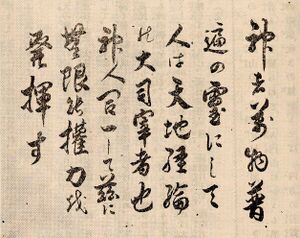 神は万物普
遍の霊にして
人は天地経綸
の大司宰者也
神人合一して茲に
無限の権力を
発揮す